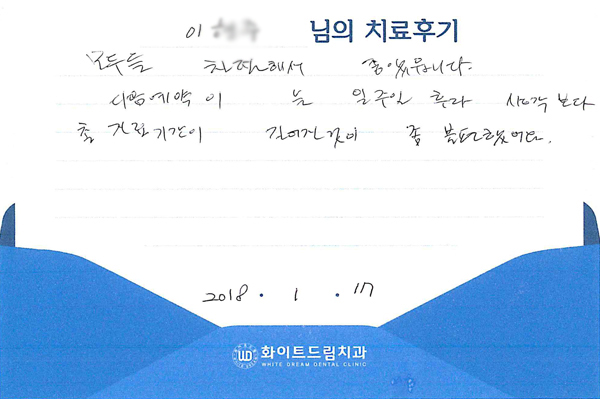 이 님의 치료후기
모두들 친절해서 좋았습니다.
다음예약이 늘 일주일 후라 생각보다
총 진료기간이 길어진것이 좀 불편했었어요.
2018 . 1 . 17
화이트드림치과
WHITE DREAM DENTAL CLINIC